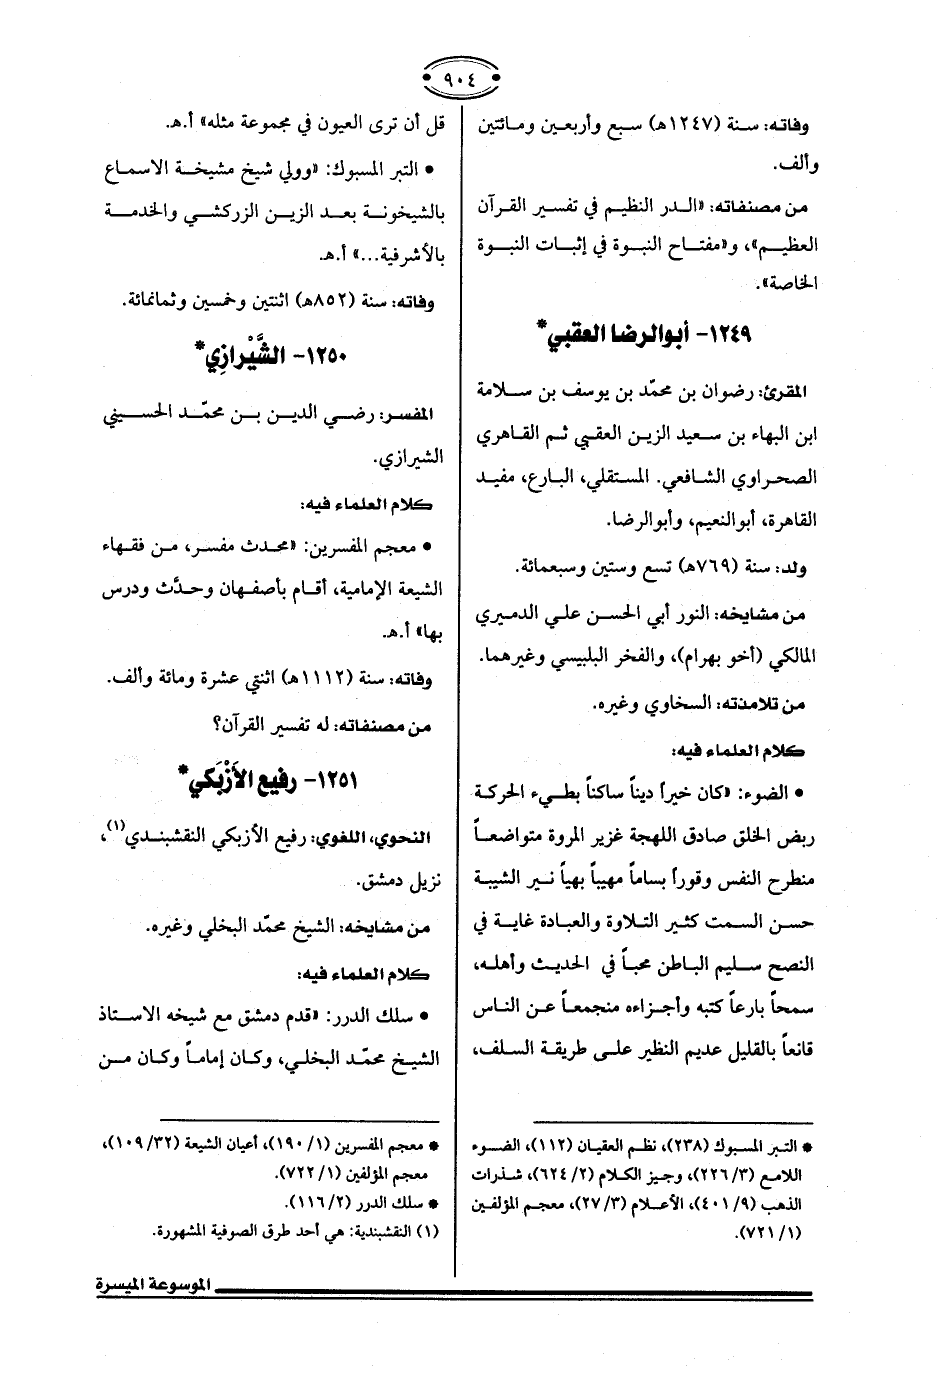 ٩٠٤
وفاته: سنة (١٢٤٧هـ) سبع وأربعين ومائتين
وألف.
من مصنفاته: «الدر النظيم في تفسير القرآن
العظيم»، و«مفتاح النبوة في إثبات النبوة
الخاصة».
١٢٤٩- أبوالرضا العقبي*
المقرئ: رضوان بن محمّد بن يوسف بن سلامة
ابن البهاء بن سعيد الزين العقبي ثم القاهري
الصحراوي الشافعي. المستقلي، البارع، مفيد
القاهرة، أبوالنعيم، وأبوالرضا.
ولد: سنة (٧٦٩هـ) تسع وستين وسبعمائة.
من مشايخه: النور أبي الحسن علي الدميري
المالكي (أخو بهرام)، والفخر البلبيسي وغيرهما.
من تلامذته: السخاوي وغيره.
كلام العلماء فيه:
• الضوء: «كان خيراً ديناً ساكناً بطيء الحركة
ربض الخلق صادق اللهجة غزير المروة متواضعاً
منطرح النفس وقوراً بساماً مهيباً بهياً نير الشيبة
حسن السمت كثير التلاوة والعبادة غاية في
النصح سليم الباطن محباً في الحديث وأهله،
سمحاً بارعاً كتبه وأجزاءه منجمعاً عن الناس
قانعاً بالقليل عديم النظير على طريقة السلف،
* التبر المسبوك (٢٣٨)، نظم العقيان (١١٢)، الضوء
اللامع (٣/ ٢٢٦)، وجيز الكلام (٢/ ٦٢٤)، شذرات
الذهب (٩/ ٤٠١)، الأعلام (٣/ ٢٧)، معجم المؤلفين
(١/ ٧٢١).
قل أن ترى العيون في مجموعة مثله» أ.هـ.
• التبر المسبوك: «وولي شيخ مشيخة الاسماع
بالشيخونة بعد الزين الزركشي والخدمة
بالأشرفية...» أ.هـ.
وفاته: سنة (٨٥٢هـ) اثنتين وخمسين وثمانمائة.
١٢٥٠- الشَّيْرازِي*
المفسر: رضي الدين بن محمّد الحسيني
الشيرازي.
كلام العلماء فيه:
• معجم المفسرين: «محدث مفسر، من فقهاء
الشيعة الإمامية، أقام بأصفهان وحدَّث ودرس
بها» أ.هـ.
وفاته: سنة (١١١٢هـ) اثنتي عشرة ومائة وألف.
من مصنفاته: له تفسير القرآن؟
١٢٥١- رفيع الأَزْبَكي*
النحوي، اللغوي: رفيع الأزبكي النقشبندي(١)،
نزيل دمشق.
من مشايخه: الشيخ محمّد البخلي وغيره.
كلام العلماء فيه:
• سلك الدرر: «قدم دمشق مع شيخه الاستاذ
الشيخ محمّد البخلي، وكان إماماً وكان من
* معجم المفسرين (١/ ١٩٠)، أعيان الشيعة (٣٢/ ١٠٩)،
معجم المؤلفين (١/ ٧٢٢).
* سلك الدرر (٢/ ١١٦).
(١) النقشبندية: هي أحد طرق الصوفية المشهورة.
الموسوعة الميسرة